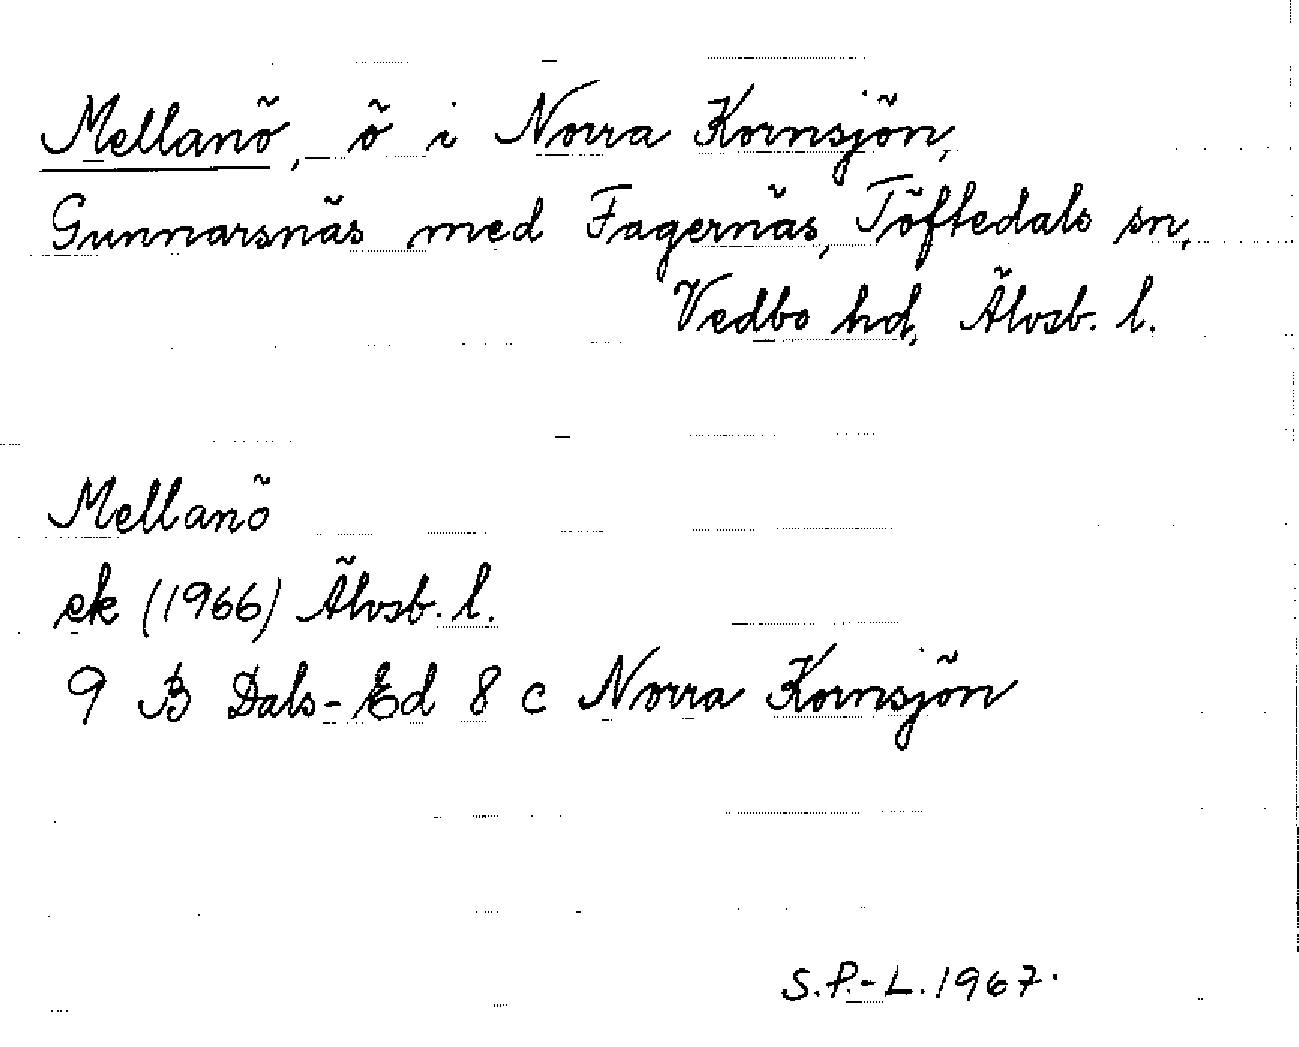 Mellanö, ö i Norra Kornsjön,
Gunnarsnäs med Fagernäs, Töftedals sn,
Vedbo hd, Älvsb. l.
Mellanö
ek (1966) Älvsb. l.
9 B Dals-Ed 8 c Norra Kornsjön
S.P.-L. 1967.